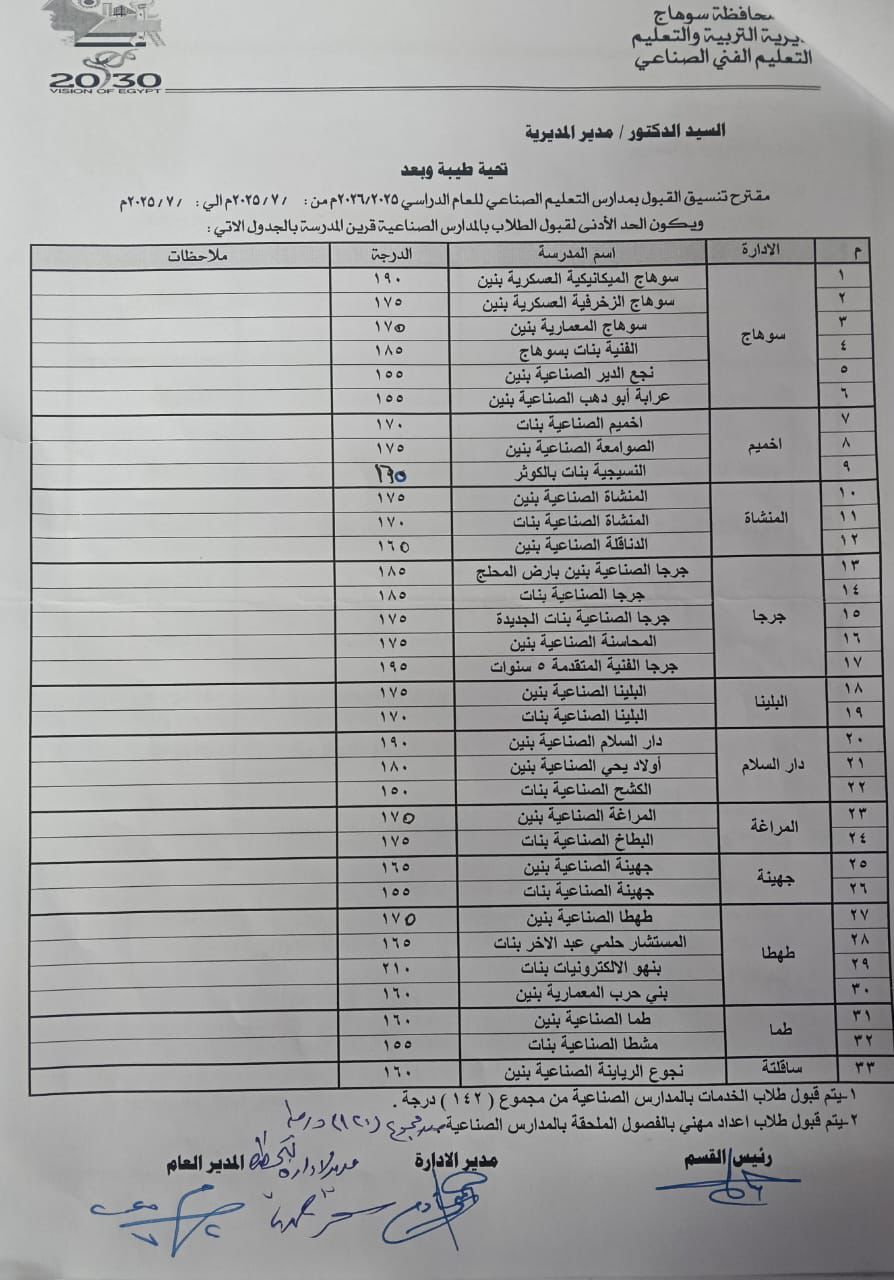 محافظة سوهاج
مديرية التربية والتعليم
التعليم الفني الصناعي
2030
VISION OF EGYPT
السيد الدكتور / مدير المديرية
تحية طيبة وبعد
مقترح تنسيق القبول بمدارس التعليم الصناعي للعام الدراسي ٢٠٢٦/٢٠٢٥م من : /٢٠٢٥/٧م الي : /٢٠٢٥/٧م
ويكون الحد الأدنى لقبول الطلاب بالمدارس الصناعية قرين المدرسة بالجدول الاتي :
م الادارة اسم المدرسة الدرجة ملاحظات
١ سوهاج سوهاج الميكانيكية العسكرية بنين ١٩٠
٢ سوهاج الزخرفية العسكرية بنين ١٧٥
٣ سوهاج المعمارية بنين ١٧٥
٤ الفنية بنات بسوهاج ١٨٥
٥ نجع الدير الصناعية بنين ١٥٥
٦ عرابة أبو دهب الصناعية بنين ١٥٥
٧ اخميم اخميم الصناعية بنات ١٧٠
٨ الصوامعة الصناعية بنين ١٧٥
٩ النسيجية بنات بالكوثر
١٠ المنشاة المنشاة الصناعية بنين ١٧٥
١١ المنشاة الصناعية بنات ١٧٠
١٢ الدناقلة الصناعية بنين ١٦٥
١٣ جرجا جرجا الصناعية بنين بارض المحلج ١٨٥
١٤ جرجا الصناعية بنات ١٨٥
١٥ جرجا الصناعية بنات الجديدة ١٧٥
١٦ المحاسنة الصناعية بنين ١٧٥
١٧ جرجا الفنية المتقدمة ٥ سنوات ١٩٥
١٨ البلينا البلينا الصناعية بنين ١٧٥
١٩ البلينا الصناعية بنات ١٧٠
٢٠ دار السلام دار السلام الصناعية بنين ١٩٠
٢١ أولاد يحي الصناعية بنين ١٨٠
٢٢ الكشح الصناعية بنات ١٥٠
٢٣ المراغة المراغة الصناعية بنين ١٧٥
٢٤ البطاخ الصناعية بنات ١٧٥
٢٥ جهينة جهينة الصناعية بنين ١٦٥
٢٦ جهينة الصناعية بنات ١٥٥
٢٧ طهطا طهطا الصناعية بنين ١٧٥
٢٨ المستشار حلمي عبد الاخر بنات ١٦٥
٢٩ بنهو الالكترونيات بنات ٢١٠
٣٠ بني حرب المعمارية بنين ١٦٠
٣١ طما طما الصناعية بنين ١٦٠
٣٢ مشطا الصناعية بنات ١٥٥
٣٣ ساقلتة نجوع الرياينة الصناعية بنين ١٦٠
١-يتم قبول طلاب الخدمات بالمدارس الصناعية من مجموع ( ١٤٢ ) درجة .
٢-يتم قبول طلاب اعداد مهني بالفصول الملحقة بالمدارس الصناعية من مجموع (١٢٠) درجة
رئيس القسم مدير الادارة مدير ادارة التخطيط المدير العام